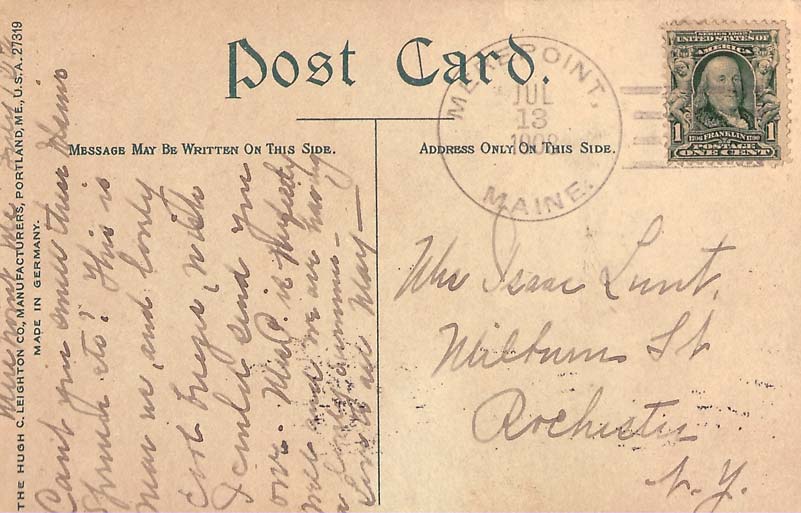 Post Card.
MESSAGE MAY BE WRITTEN ON THIS SIDE.
ADDRESS ONLY ON THIS SIDE.
THE HUGH C. LEIGHTON CO., MANUFACTURERS, PORTLAND, ME., U.S.A. 27319
MADE IN GERMANY.
MEREPOINT,
JUL
13
1908
MAINE.
SERIES 1902
UNITED STATES OF
AMERICA
1 1
FRANKLIN
POSTAGE
ONE CENT
Mere Point Me July
Can't you smell these
Spruce etc? This is
near us, and lovely
cool breezes, wish
I could send you
one. Miss C. is perfectly
well and we are having
a
Love to all May
Mrs Isaac Lunt,
Milburn St
Rochester
N.Y.